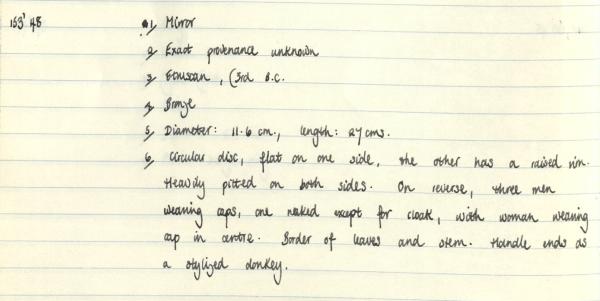 153' 48 1, Mirror
2, Exact provenance unknown
3, Etruscan, C3rd B.C.
4, Bronze
5, Diameter: 11.6 cm., length: 27 cms.
6, Circular disc, flat on one side, the other has a raised rim.
Heavily pitted on both sides. On reverse, three men
wearing caps, one naked except for cloak, with woman wearing
cap in centre. Border of leaves and stem. Handle ends as
a stylized donkey.